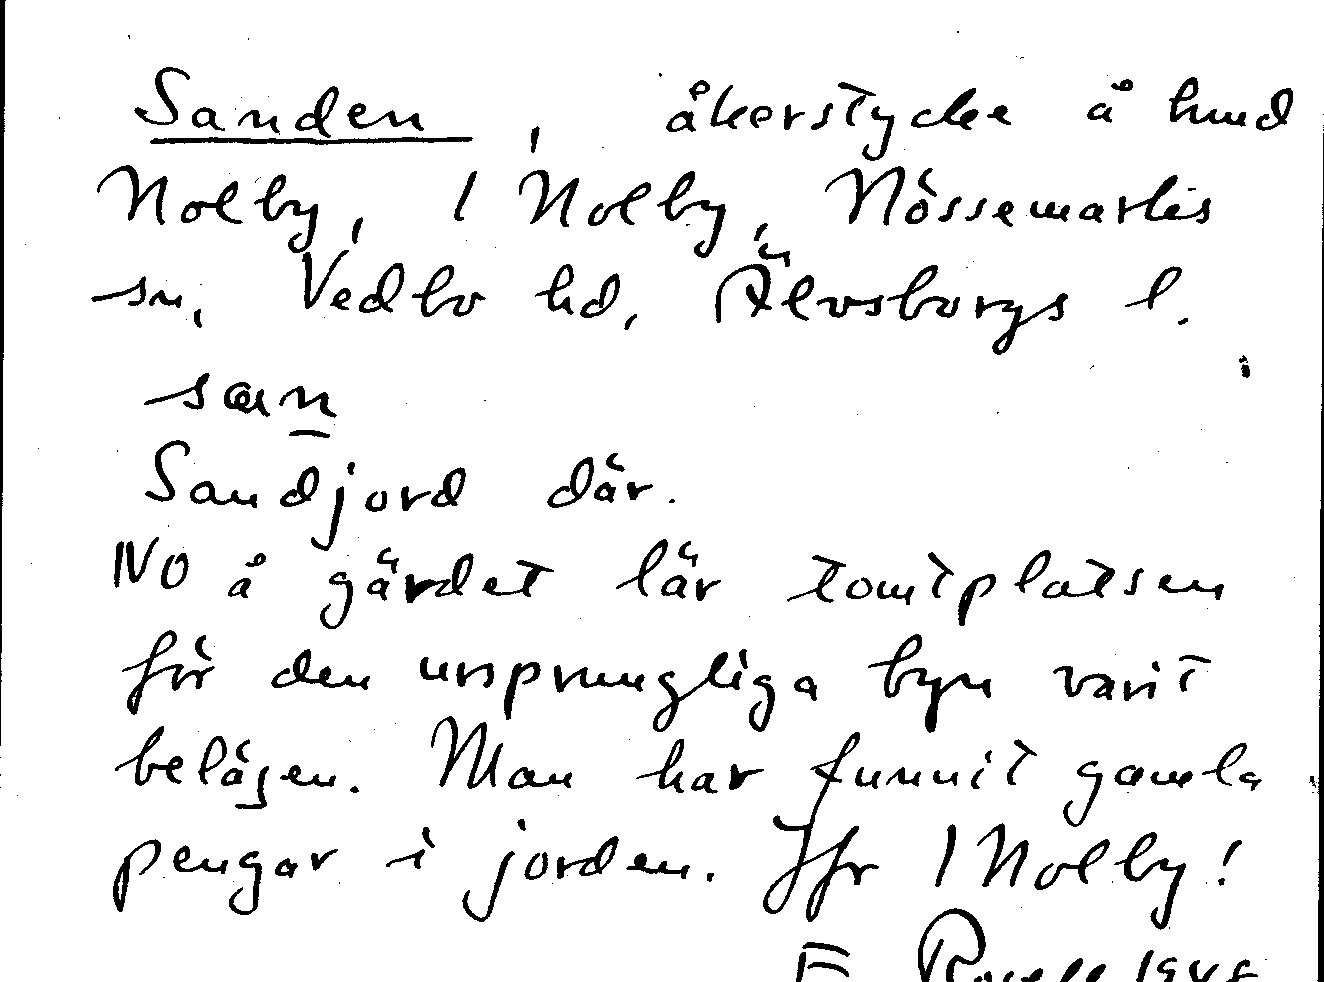 Sanden, åkerstycke å hmd
Nolby, 1 Nolby, Nössemarks
sn, Vedbo hd, Älvsborgs l.
san
Sandjord där.
NO å gärdet lär tomtplatsen
för den ursprungliga byn varit
belägen. Man har funnit gamla
pengar i jorden. Jfr 1 Nolby!